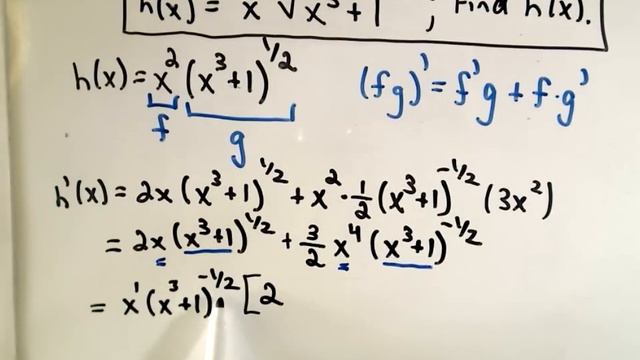 h(x) = x √x³+1 ; Find h(x).
h(x) = x² (x³+1)^1/2 (fg)' = f'g + f·g'
f g
h'(x) = 2x (x³+1)^1/2 + x² · 1/2 (x³+1)^-1/2 (3x²)
= 2x (x³+1)^1/2 + 3/2 x⁴ (x³+1)^-1/2
= x¹ (x³+1)^-1/2 [2